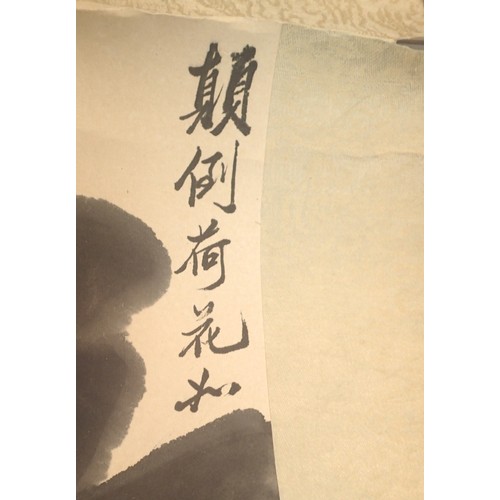 顛倒荷花如